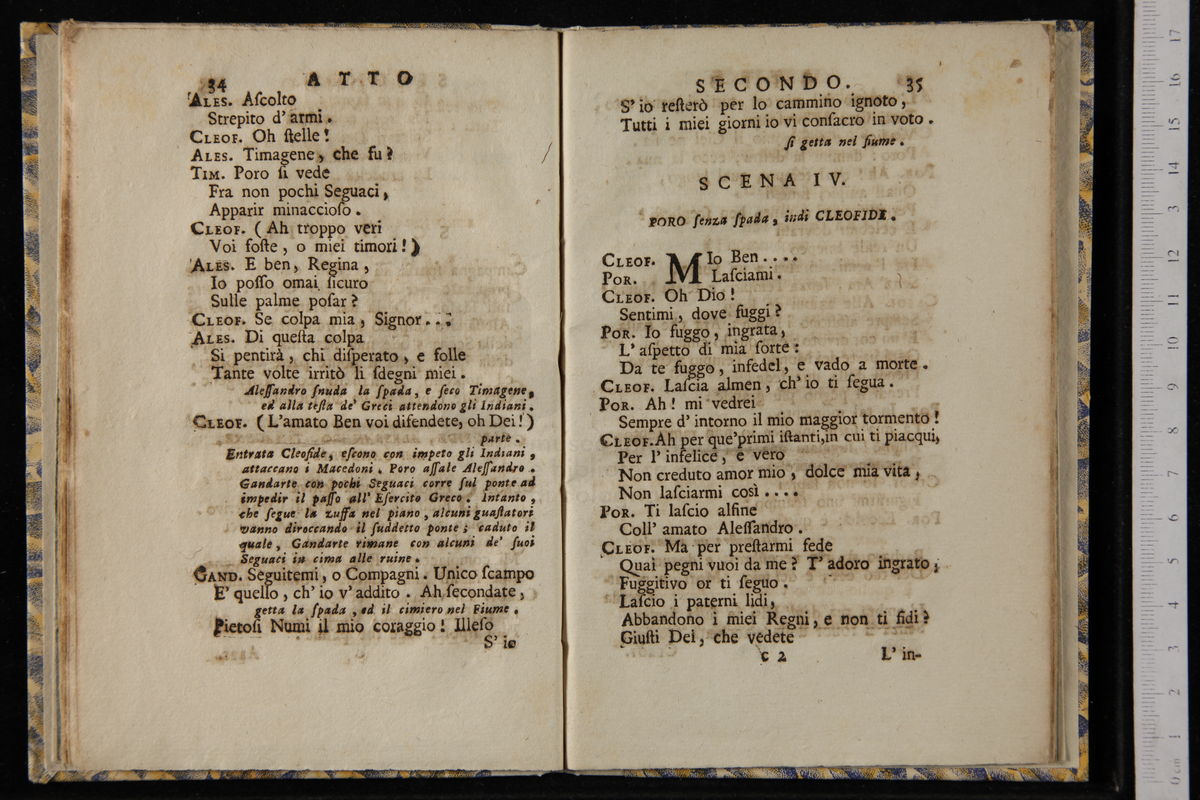 34 ATTO
ALES. Aſcolto
Strepito d'armi.
CLEOF. Oh ſtelle!
ALES. Timagene, che fu?
TIM. Poro ſi vede
Fra non pochi Seguaci,
Apparir minaccioſo.
CLEOF. (Ah troppo veri
Voi foſte, o miei timori!)
ALES. E ben, Regina,
Io poſſo omai ſicuro
Sulle palme poſar?
CLEOF. Se colpa mia, Signor...
ALES. Di queſta colpa
Si pentirà, chi diſperato, e folle
Tante volte irritò li ſdegni miei.
Aleſſandro ſnuda la ſpada, e ſeco Timagene,
ed alla teſta de' Greci attendono gli Indiani.
CLEOF. (L'amato Ben voi difendete, oh Dei!)
parte.
Entrata Cleofide, eſcono con impeto gli Indiani,
attaccano i Macedoni. Poro aſſale Aleſſandro.
Gandarte con pochi Seguaci corre ſul ponte ad
impedir il paſſo all' Eſercito Greco. Intanto,
che ſegue la zuffa nel piano, alcuni guaſtatori
vanno diroccando il ſuddetto ponte; caduto il
quale, Gandarte rimane con alcuni de' ſuoi
Seguaci in cima alle ruine.
GAND. Seguitemi, o Compagni. Unico ſcampo
E' quello, ch'io v'addito. Ah ſecondate,
getta la ſpada, ed il cimiero nel Fiume.
Pietoſi Numi il mio coraggio! Illeſo
S'io
SECONDO. 35
S'io reſterò per lo cammino ignoto,
Tutti i miei giorni io vi conſacro in voto.
ſi getta nel fiume.
SCENA IV.
PORO ſenza ſpada, indi CLEOFIDE.
CLEOF. MIo Ben....
POR. Laſciami.
CLEOF. Oh Dio!
Sentimi, dove fuggi?
POR. Io fuggo, ingrata,
L'aſpetto di mia ſorte:
Da te fuggo, infedel, e vado a morte.
CLEOF. Laſcia almen, ch'io ti ſegua.
POR. Ah! mi vedrei
Sempre d'intorno il mio maggior tormento!
CLEOF. Ah per que'primi iſtanti, in cui ti piacqui,
Per l'infelice, e vero
Non creduto amor mio, dolce mia vita,
Non laſciarmi così....
POR. Ti laſcio alfine
Coll' amato Aleſſandro.
CLEOF. Ma per preſtarmi fede
Quai pegni vuoi da me? T'adoro ingrato;
Fuggitivo or ti ſeguo.
Laſcio i paterni lidi,
Abbandono i miei Regni, e non ti fidi?
Giuſti Dei, che vedete
C 2 L'in-
17
16
15
14
13
12
11
10
9
8
7
6
5
4
3
2
1
0 cm